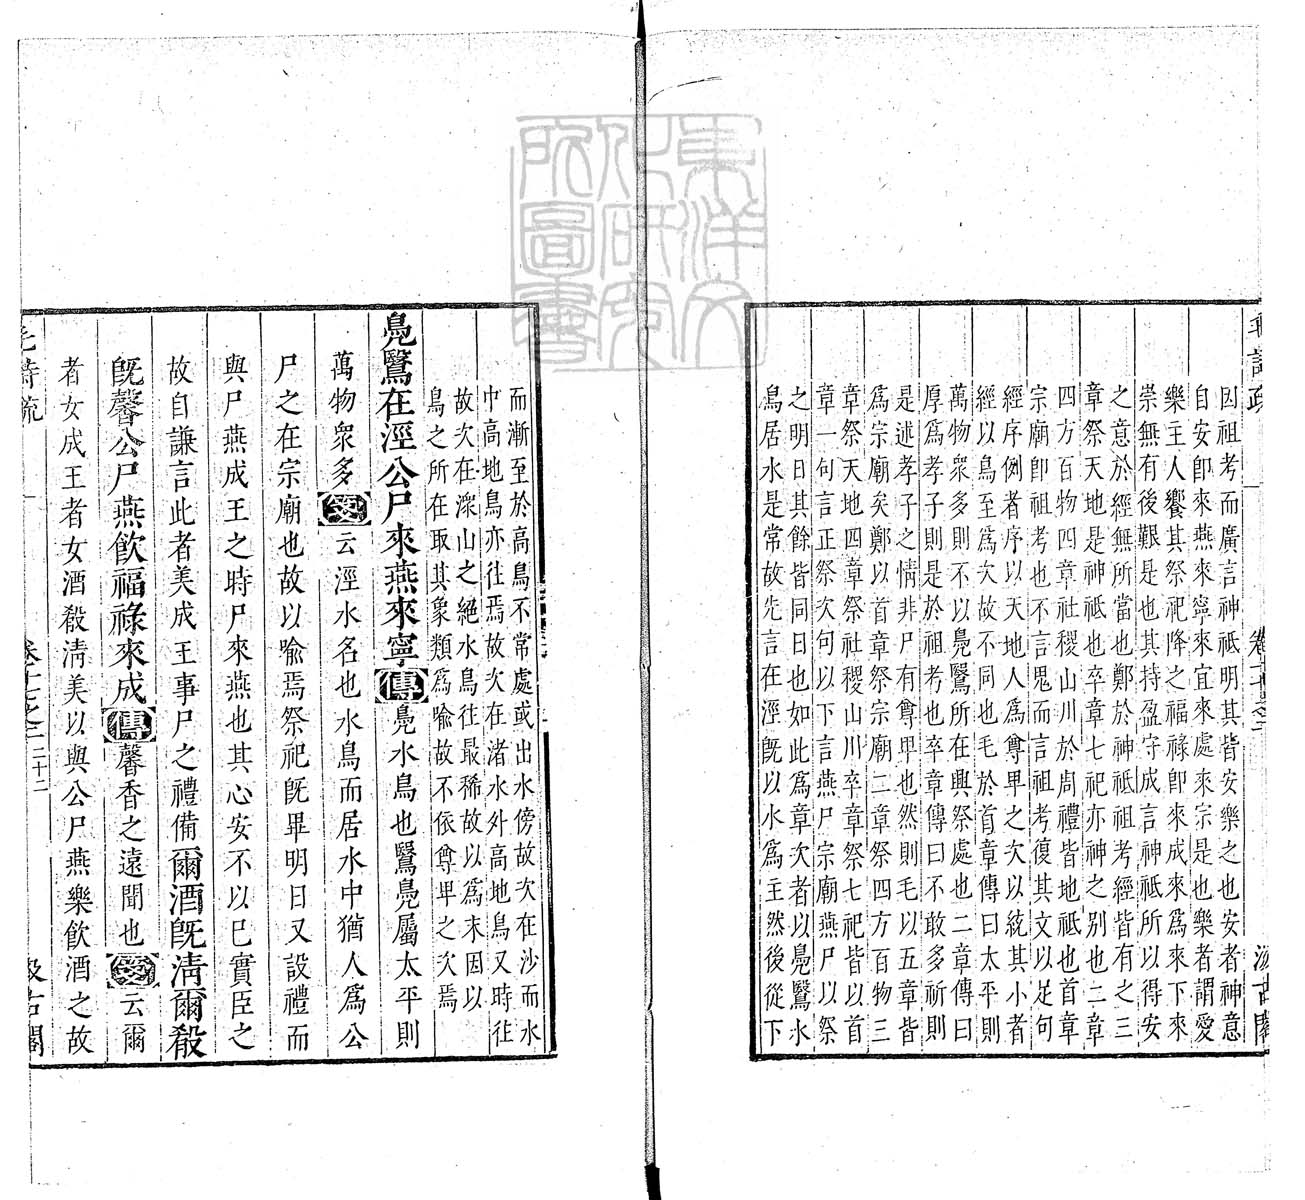 毛詩疏 卷十七之二 汲古閣
因祖考而廣言神祇明其皆安樂之也安者神意
自安卽來燕來寧來宜來處來宗是也樂者謂愛
樂主人饗其祭祀降之福祿卽來成來爲來下來
崇無有後艱是也其持盈守成言神祇所以得安
之意於經無所當也鄭於神祇祖考經皆有之三
章祭天地是神祇也卒章七祀亦神之别也二章
四方百物四章社稷山川於周禮皆地祇也首章
宗廟卽祖考也不言鬼而言祖考復其文以足句
經序例者序以天地人爲尊卑之次以統其小者
經以鳥至爲次故不同也毛於首章傳曰太平則
萬物衆多則不以鳧鷖所在興祭處也二章傳曰
厚爲孝子則是於祖考也卒章傳曰不敢多祈則
是述孝子之情非尸有尊卑也然則毛以五章皆
爲宗廟矣鄭以首章祭宗廟二章祭四方百物三
章祭天地四章祭社稷山川卒章祭七祀皆以首
章一句言正祭次句以下言燕尸宗廟燕尸以祭
之明日其餘皆同日也如此爲章次者以鳧鷖水
鳥居水是常故先言在涇旣以水爲主然後從下
而漸至於高鳥不常處或出水傍故次在沙而水
中高地鳥亦往焉故次在渚水外高地鳥又時往
故次在潨山之絕水鳥往最稀故以爲末因以
鳥之所在取其象類爲喻故不依尊卑之次焉
鳧鷖在涇公尸來燕來寧傳鳧水鳥也鷖鳧屬太平則
萬物衆多箋云涇水名也水鳥而居水中猶人爲公
尸之在宗廟也故以喻焉祭祀旣畢明日又設禮而
與尸燕成王之時尸來燕也其心安不以已實臣之
故自謙言此者美成王事尸之禮備爾酒旣淸爾殽
旣馨公尸燕飮福祿來成傳馨香之遠聞也箋云爾
者女成王者女酒殽淸美以與公尸燕樂飮酒之故
毛詩疏 卷十七之二 二十二 汲古閣
東洋文化研究所圖書